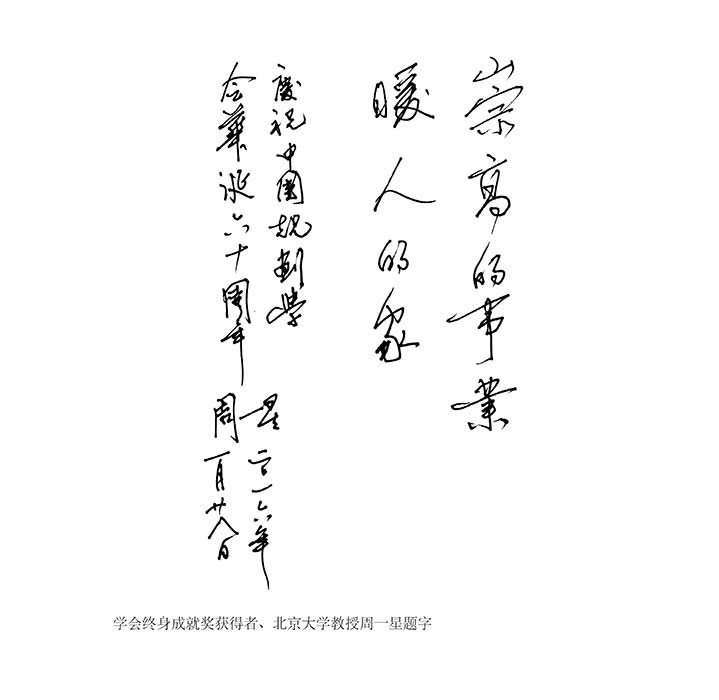 崇高的事業
暖人的家
慶祝中國規劃學
会華誕六十周年
周一星
二〇一六年
一月廿八日
学会终身成就奖获得者、北京大学教授周一星题字